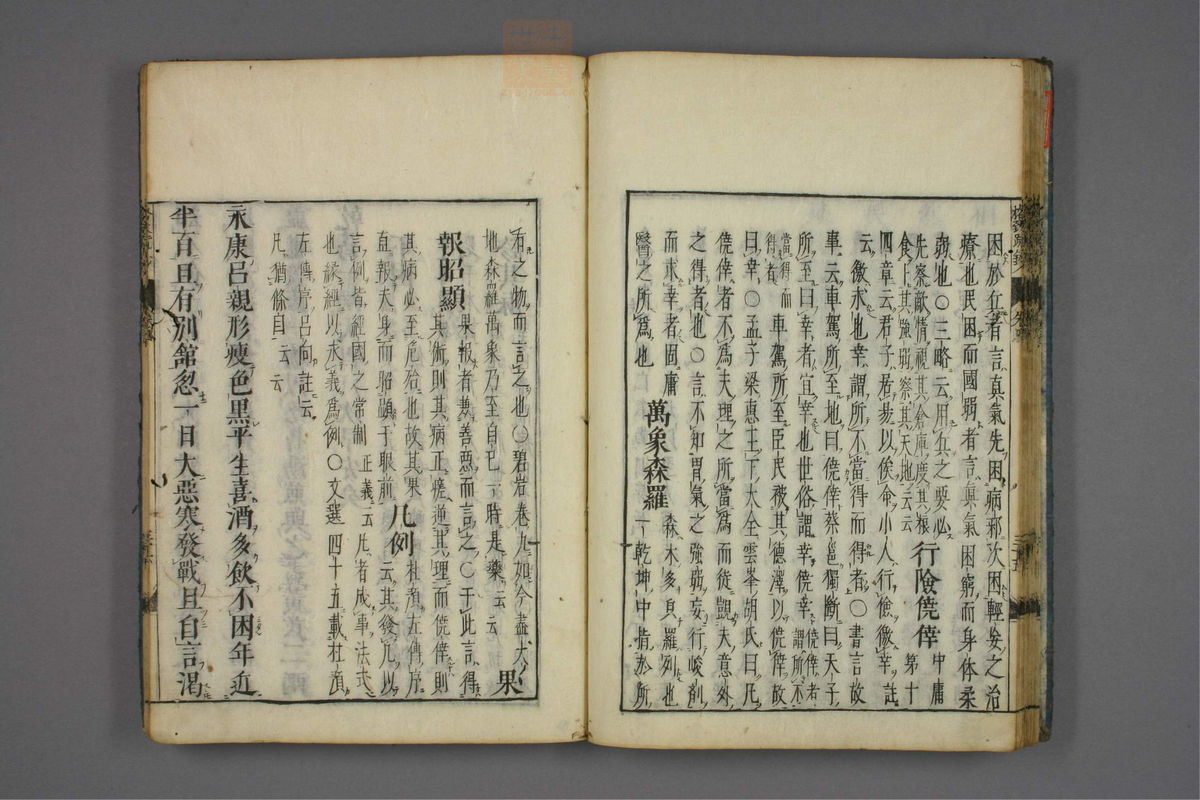 困於在者言真氣先困病邪次困輕妄之治
療也民困而國弱者言真氣困窮而身体柔
弱也〇三略云用兵之要必
先察敵情視其倉庫度其粮
食卜其強弱察其天地云云
行險僥倖
中庸
第十
四章云君子居易以俟命小人行險徼幸註
云徼求也幸謂所不當得而得者〇書言故
事云車駕所至地曰僥倖蔡邕獨斷曰天子
所曰幸者宜幸也世俗謂幸僥倖
僥倖者
謂所不
當得而
得者
車駕所至臣民被其德澤以僥倖故
曰幸〇孟子梁惠王下大全雲峯胡氏曰凡
僥倖者不爲夫理之所當爲而徒覬夫意外
之得者也〇言不知胃氣之強弱妄行峻劑
而求幸者固庸
醫之所爲也
萬象森羅
森木多皃羅列也
一乾坤中指於所
有之物而言之也〇碧岩卷九如今盡大
地森羅萬象乃至自己一時是藥云云
果
報昭顯
果報者兼善惡而言之〇于此言得
其術則其病正瘥逆其理而僥倖則
其病必至危殆也故其果
直報夫身而昭顯于眼前
凡例
杜預左傳序
云其發凡以
言例皆經國之常制
正義云凡者成事法式
也諸經以求義爲例〇文選四十五載杜預
左傳序呂向註云
凡猶條目云云
永康呂親形瘦色黒平生喜酒多飲不困年近
半百且有別舘忽一日大惡寒發戰且自言渇